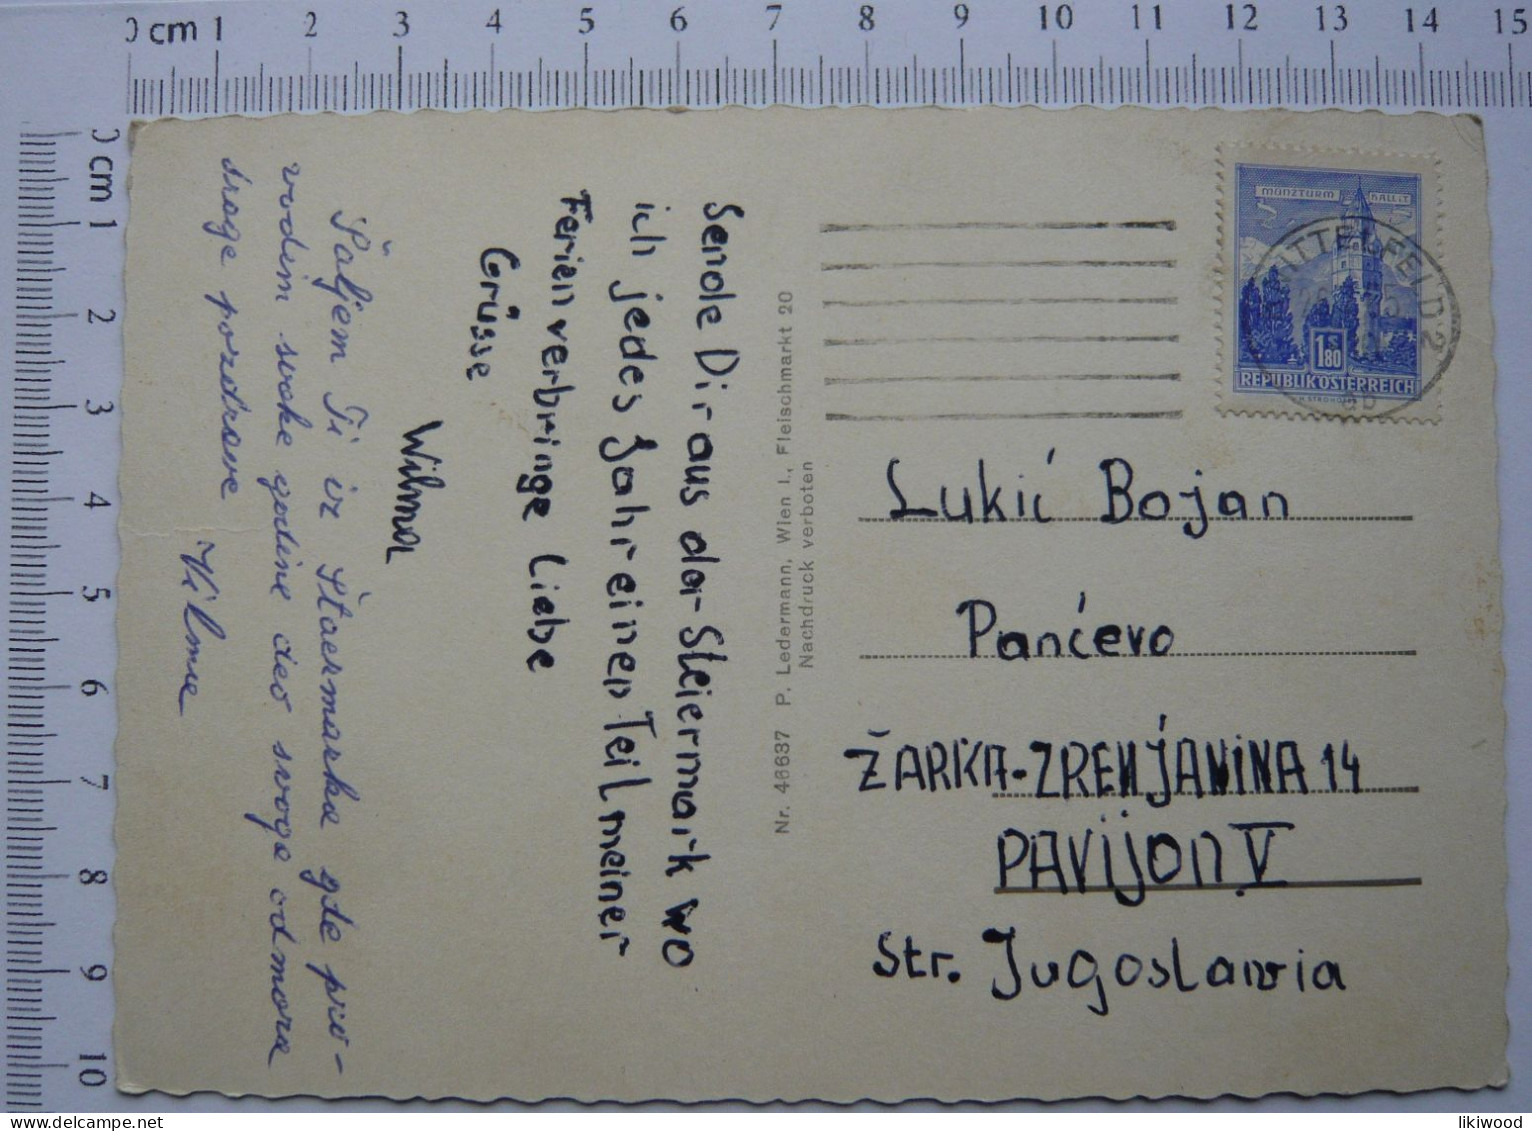 0 cm 1 2 3 4 5 6 7 8 9 10 11 12 13 14 15
0 cm 1 2 3 4 5 6 7 8 9 10
Sende Dir aus der Steiermark wo
ich jedes Jahr einen Teil meiner
Ferien verbringe Liebe
Grüsse
Wilma
Šaljem Ti iz Štaermarka gde pro-
vodim svake godine deo svoga odmora
drage pozdrave
Vilma
Nr. 46637 P. Ledermann, Wien I., Fleischmarkt 20
Nachdruck verboten
MÜNZTURM HALL i.T.
1S 80
REPUBLIK ÖSTERREICH
ITTELFELD 2
Lukić Bojan
Panćevo
ŽARKA-ZRENJANINA 14
PAVIJON V
Str. Jugoslawia
likiwood